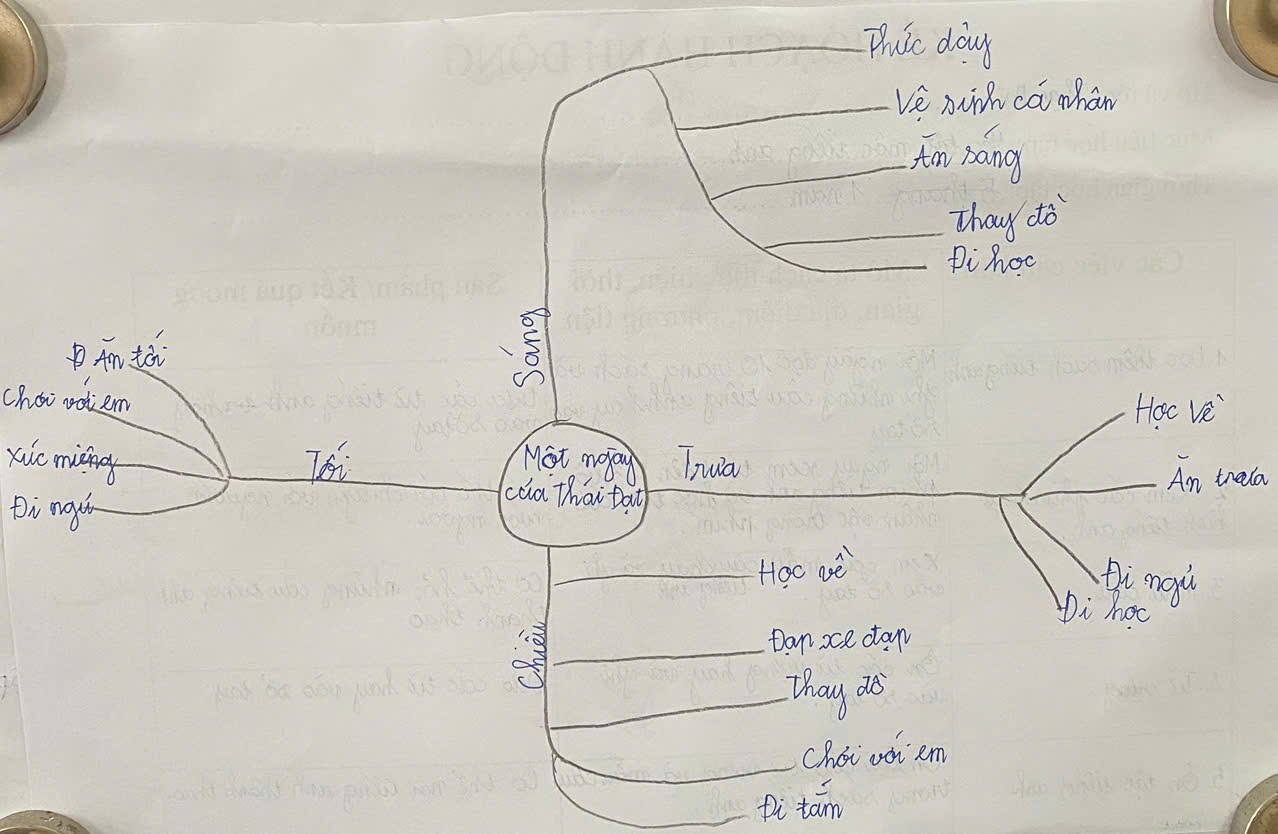 Một ngày
của Thái Đạt
Sáng
Thức dậy
Vệ sinh cá nhân
Ăn sáng
Thay đồ
Đi học
Trưa
Học về
Ăn trưa
Đi ngủ
Đi học
Chiều
Học về
Đạp xe đạp
Thay đồ
Chơi với em
Đi tắm
Tối
Ăn tối
Chơi với em
Xúc miệng
Đi ngủ